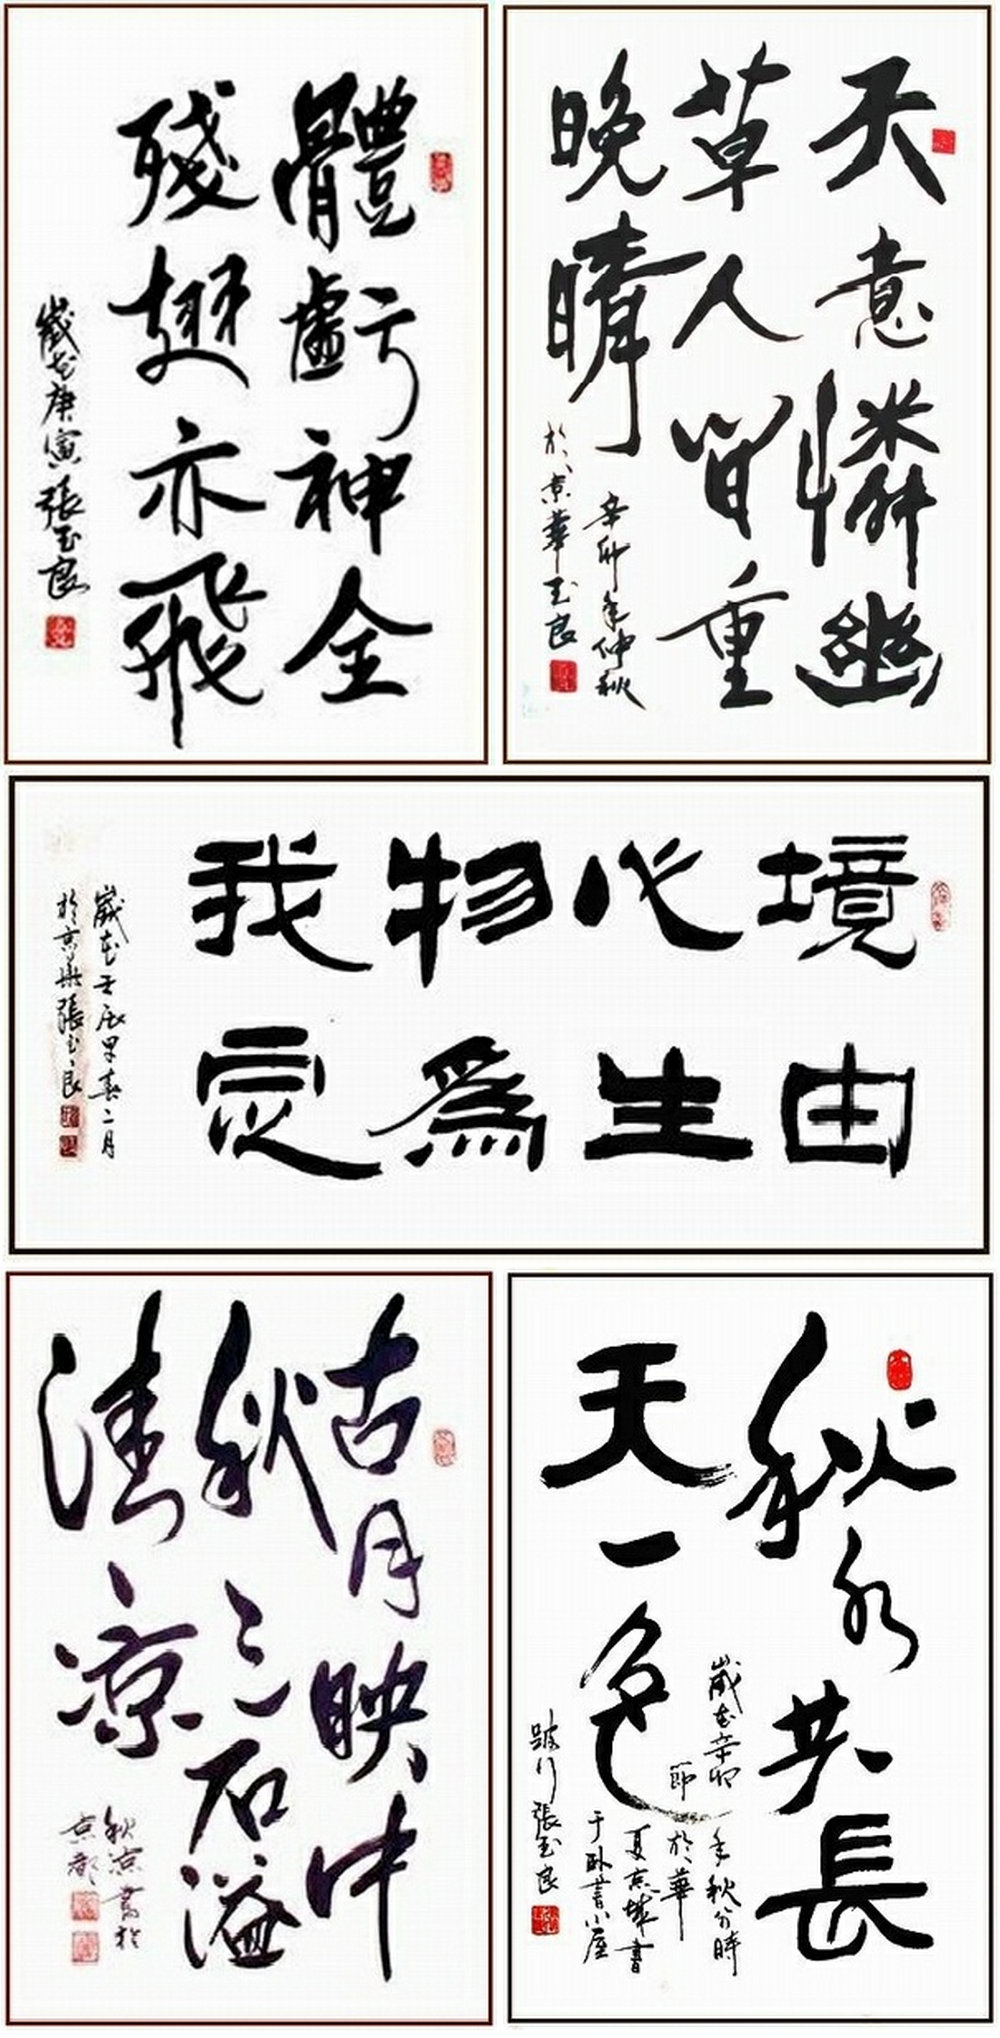 體虧神全
殘翅亦飛
歲在庚寅張玉良
天意憐幽
草人間重
晚晴
辛卯年仲秋
於京華玉良
境由
心生
物爲
我定
歲在壬辰早春二月
於京華張玉良
古月映中
秋三石溢
清凉
秋凉書於
京都
秋水共長
天一色
歲在辛卯年秋分時
節於華
夏京城書
于卧小屋
跛行張玉良